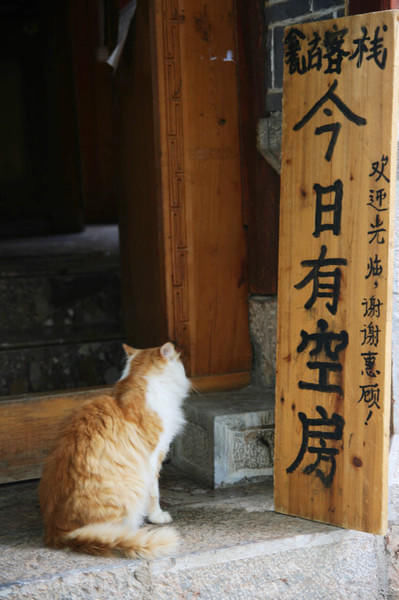 古客栈
今日有空房
欢迎光临，谢谢惠顾！